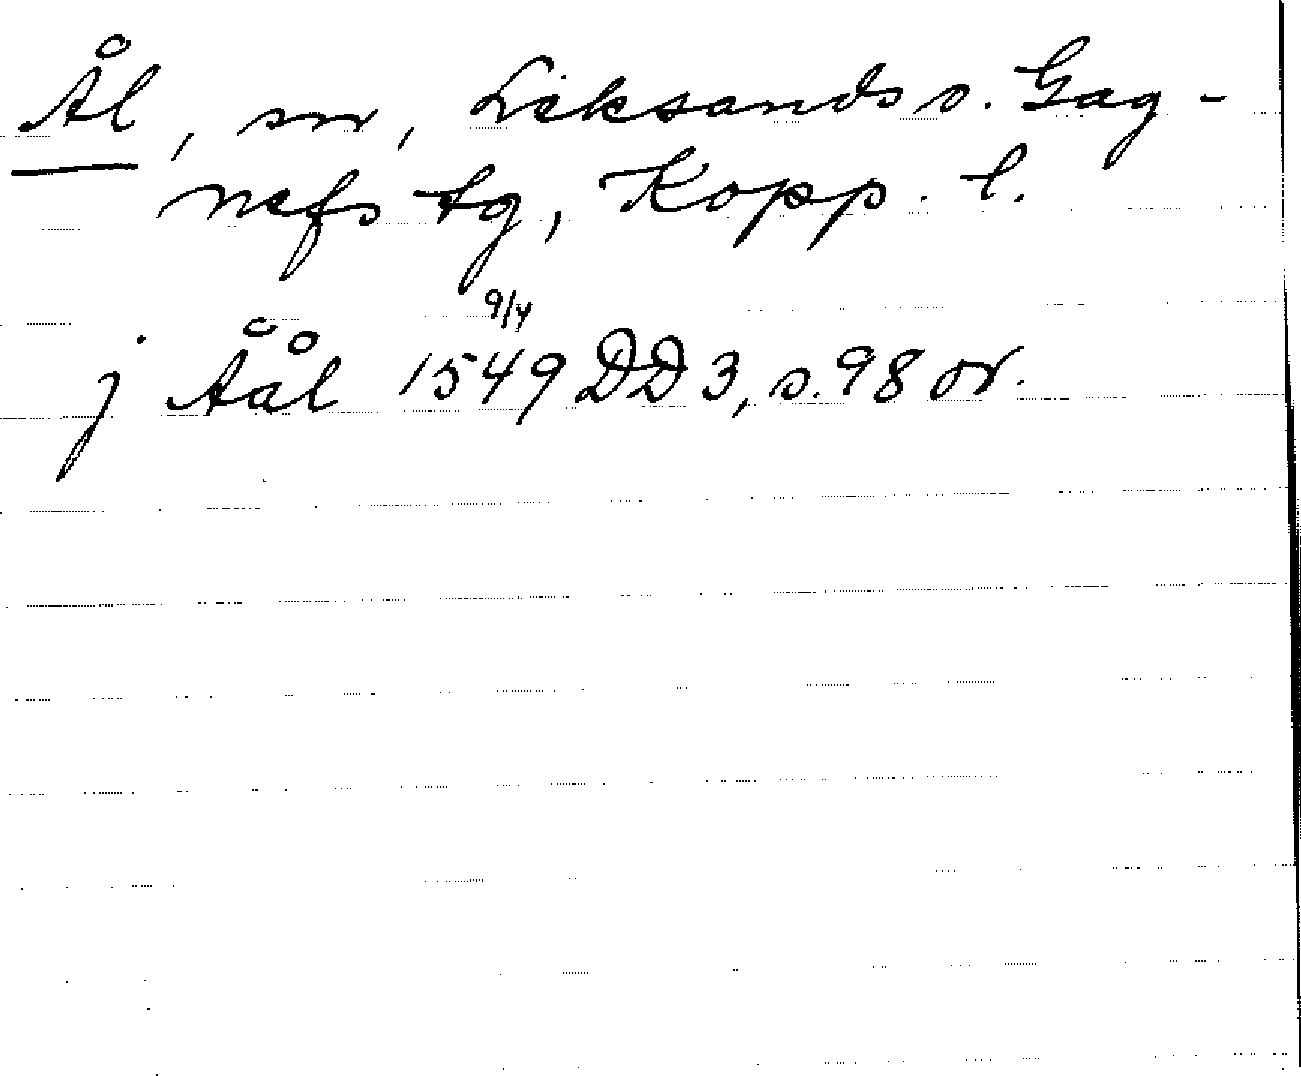 Ål, sn, Leksands o. Gag-
nefs tg, Kopp. l.
j Åål 1549 9/4 DD 3, s. 98 or.